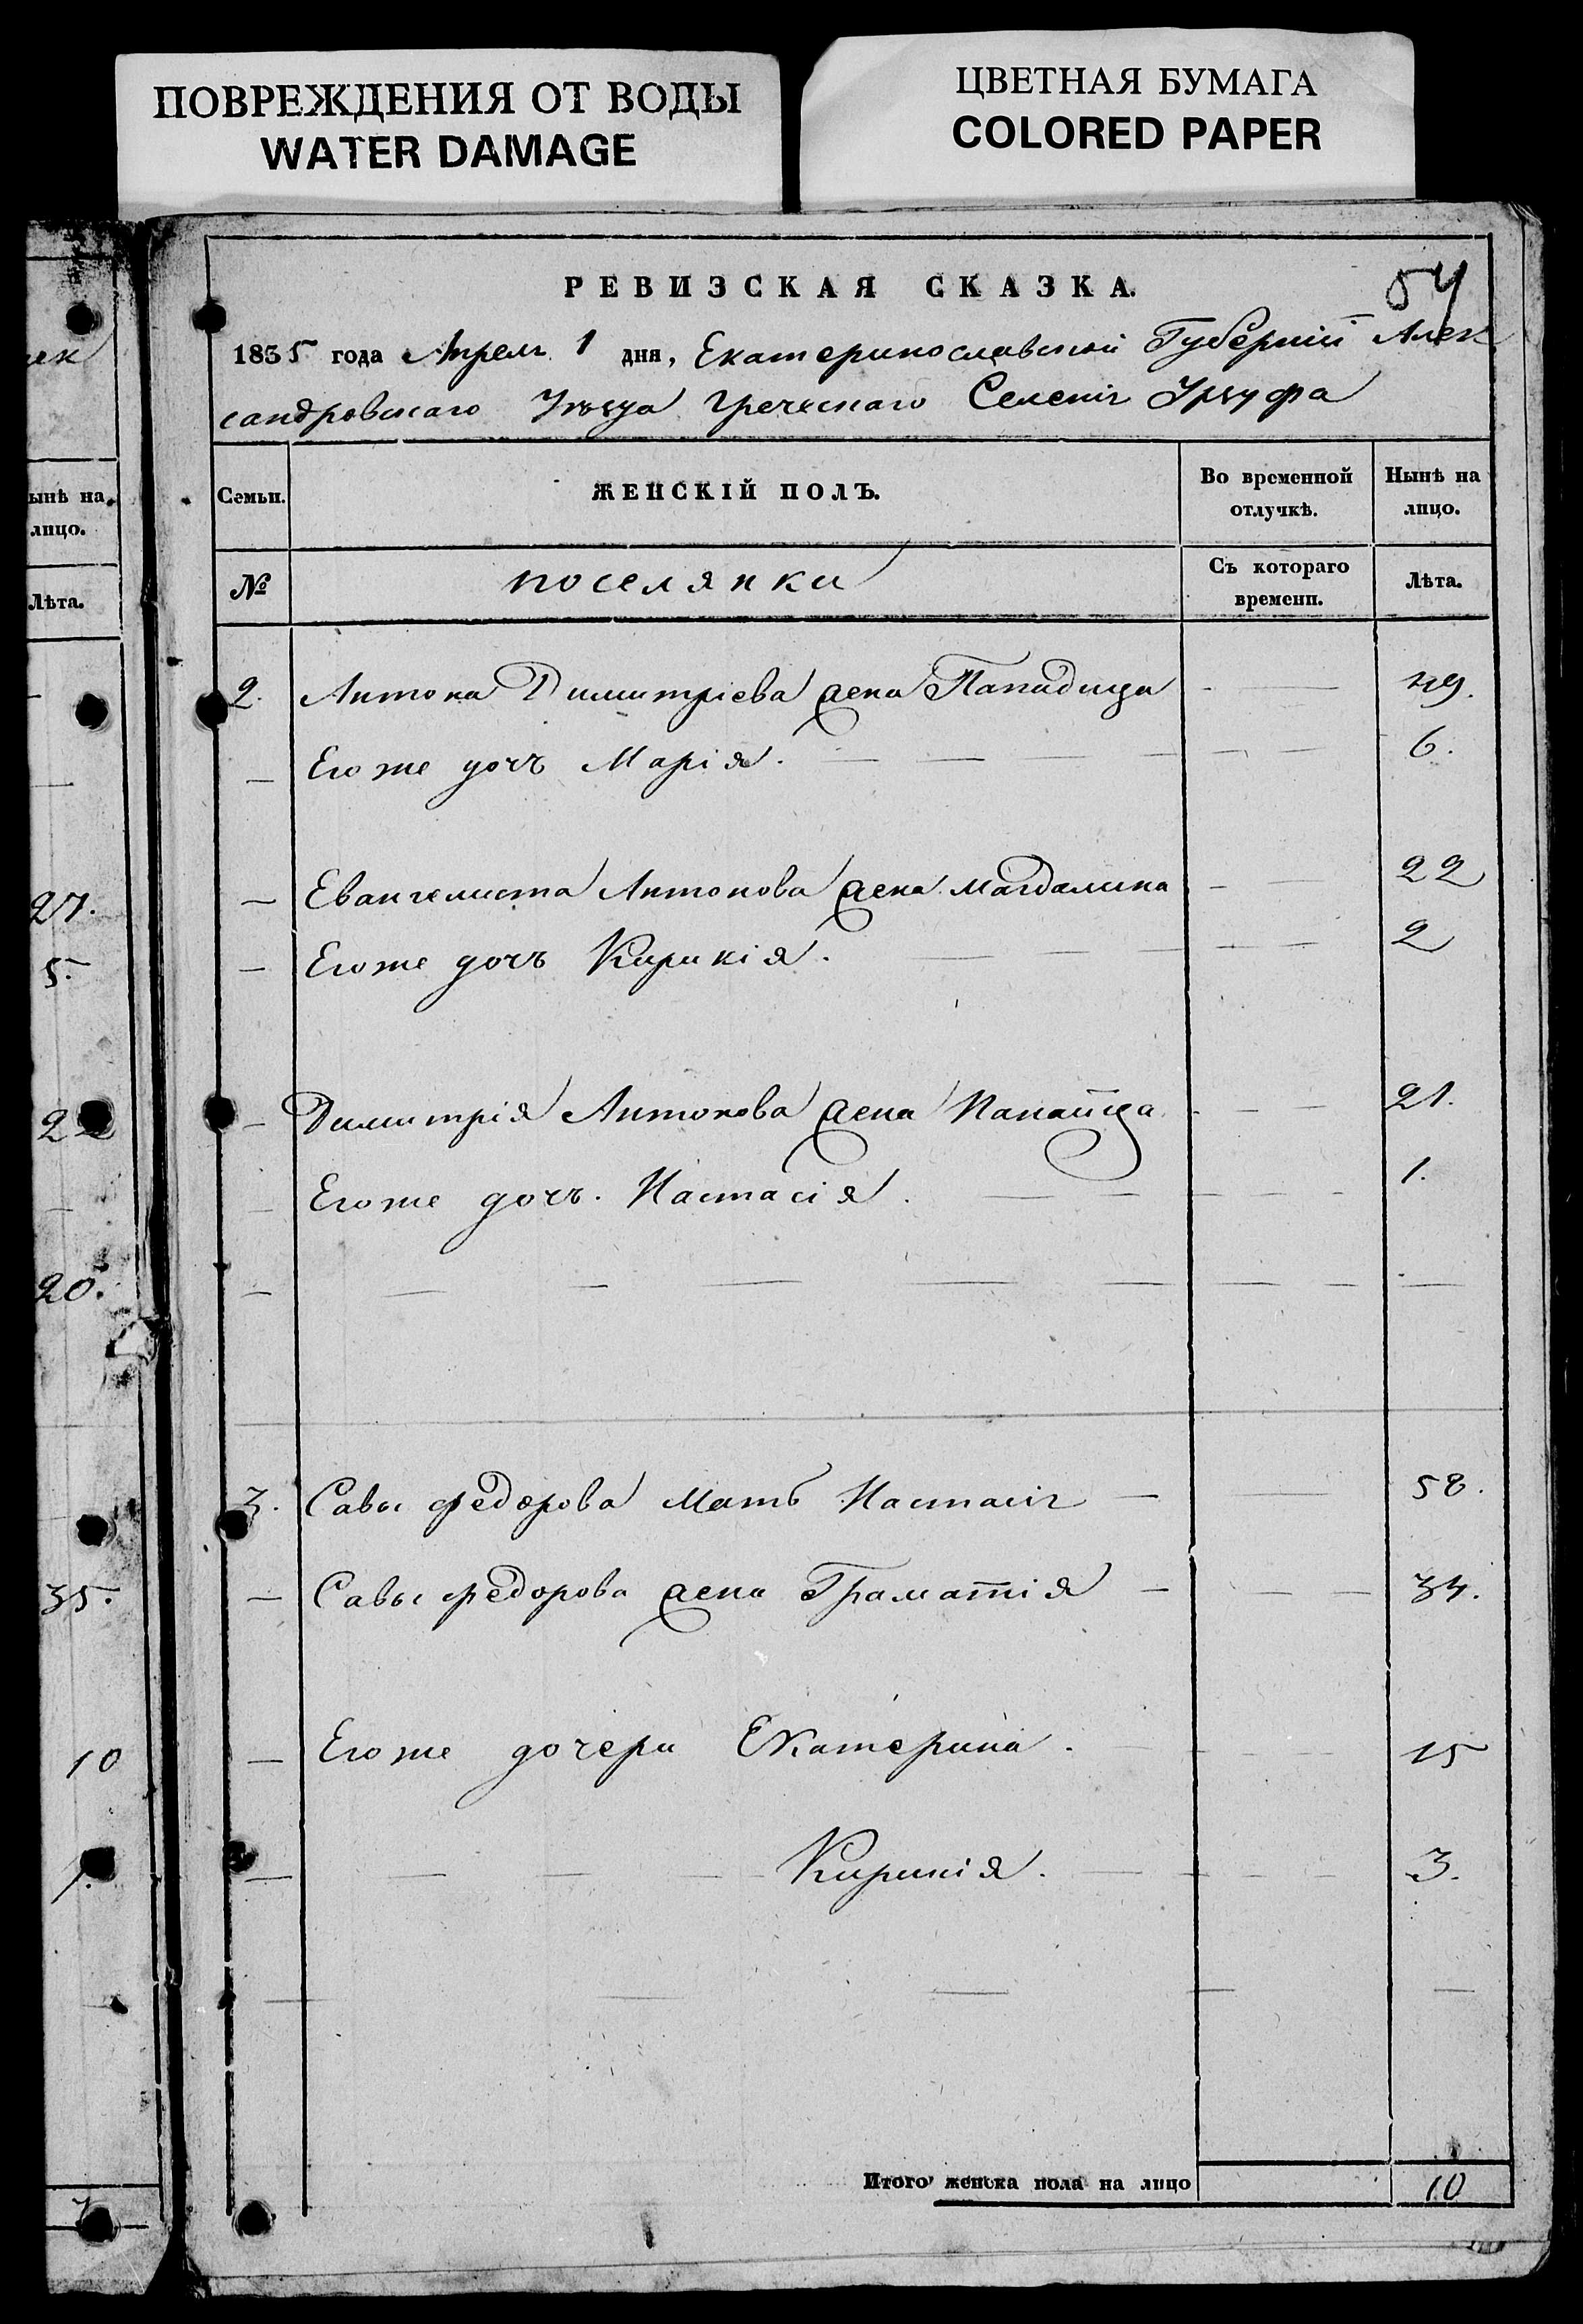 ПОВРЕЖДЕНИЯ ОТ ВОДЫ
WATER DAMAGE
ЦВЕТНАЯ БУМАГА
COLORED PAPER
54
РЕВИЗСКАЯ СКАЗКА.
1835 года Апреля 1 дня, Екатеринославской Губерніи Алек
сандровскаго Уѣзда Греческаго Селенія Урзуфа
Семьи. ЖЕНСКІЙ ПОЛЪ. Во временной отлучкѣ. Нынѣ на лицо.
№ поселянки Съ котораго времени. Лѣта.
2. Антона Димитріева жена Пападица — 49.
— Его же дочь Марія. — — — 6.
— Евангелиста Антонова жена Магдалина — 22
— Его же дочь Кирикія. — — — 2
— Димитрія Антонова жена Панаіща — 21.
— Его же дочь. Настасія. — — — 1.
3. Савы Федорова Мать Настасія — — 58.
— Савы Федорова жена Граматія — — 34.
— Его же дочери Екатерина. — — 15
— — — — Кирикія. — — 3.
Итого женска пола на лицо 10
ек
ынѣ на
лицо.
Лѣта.
27.
5.
22
20.
35.
10
1.
7